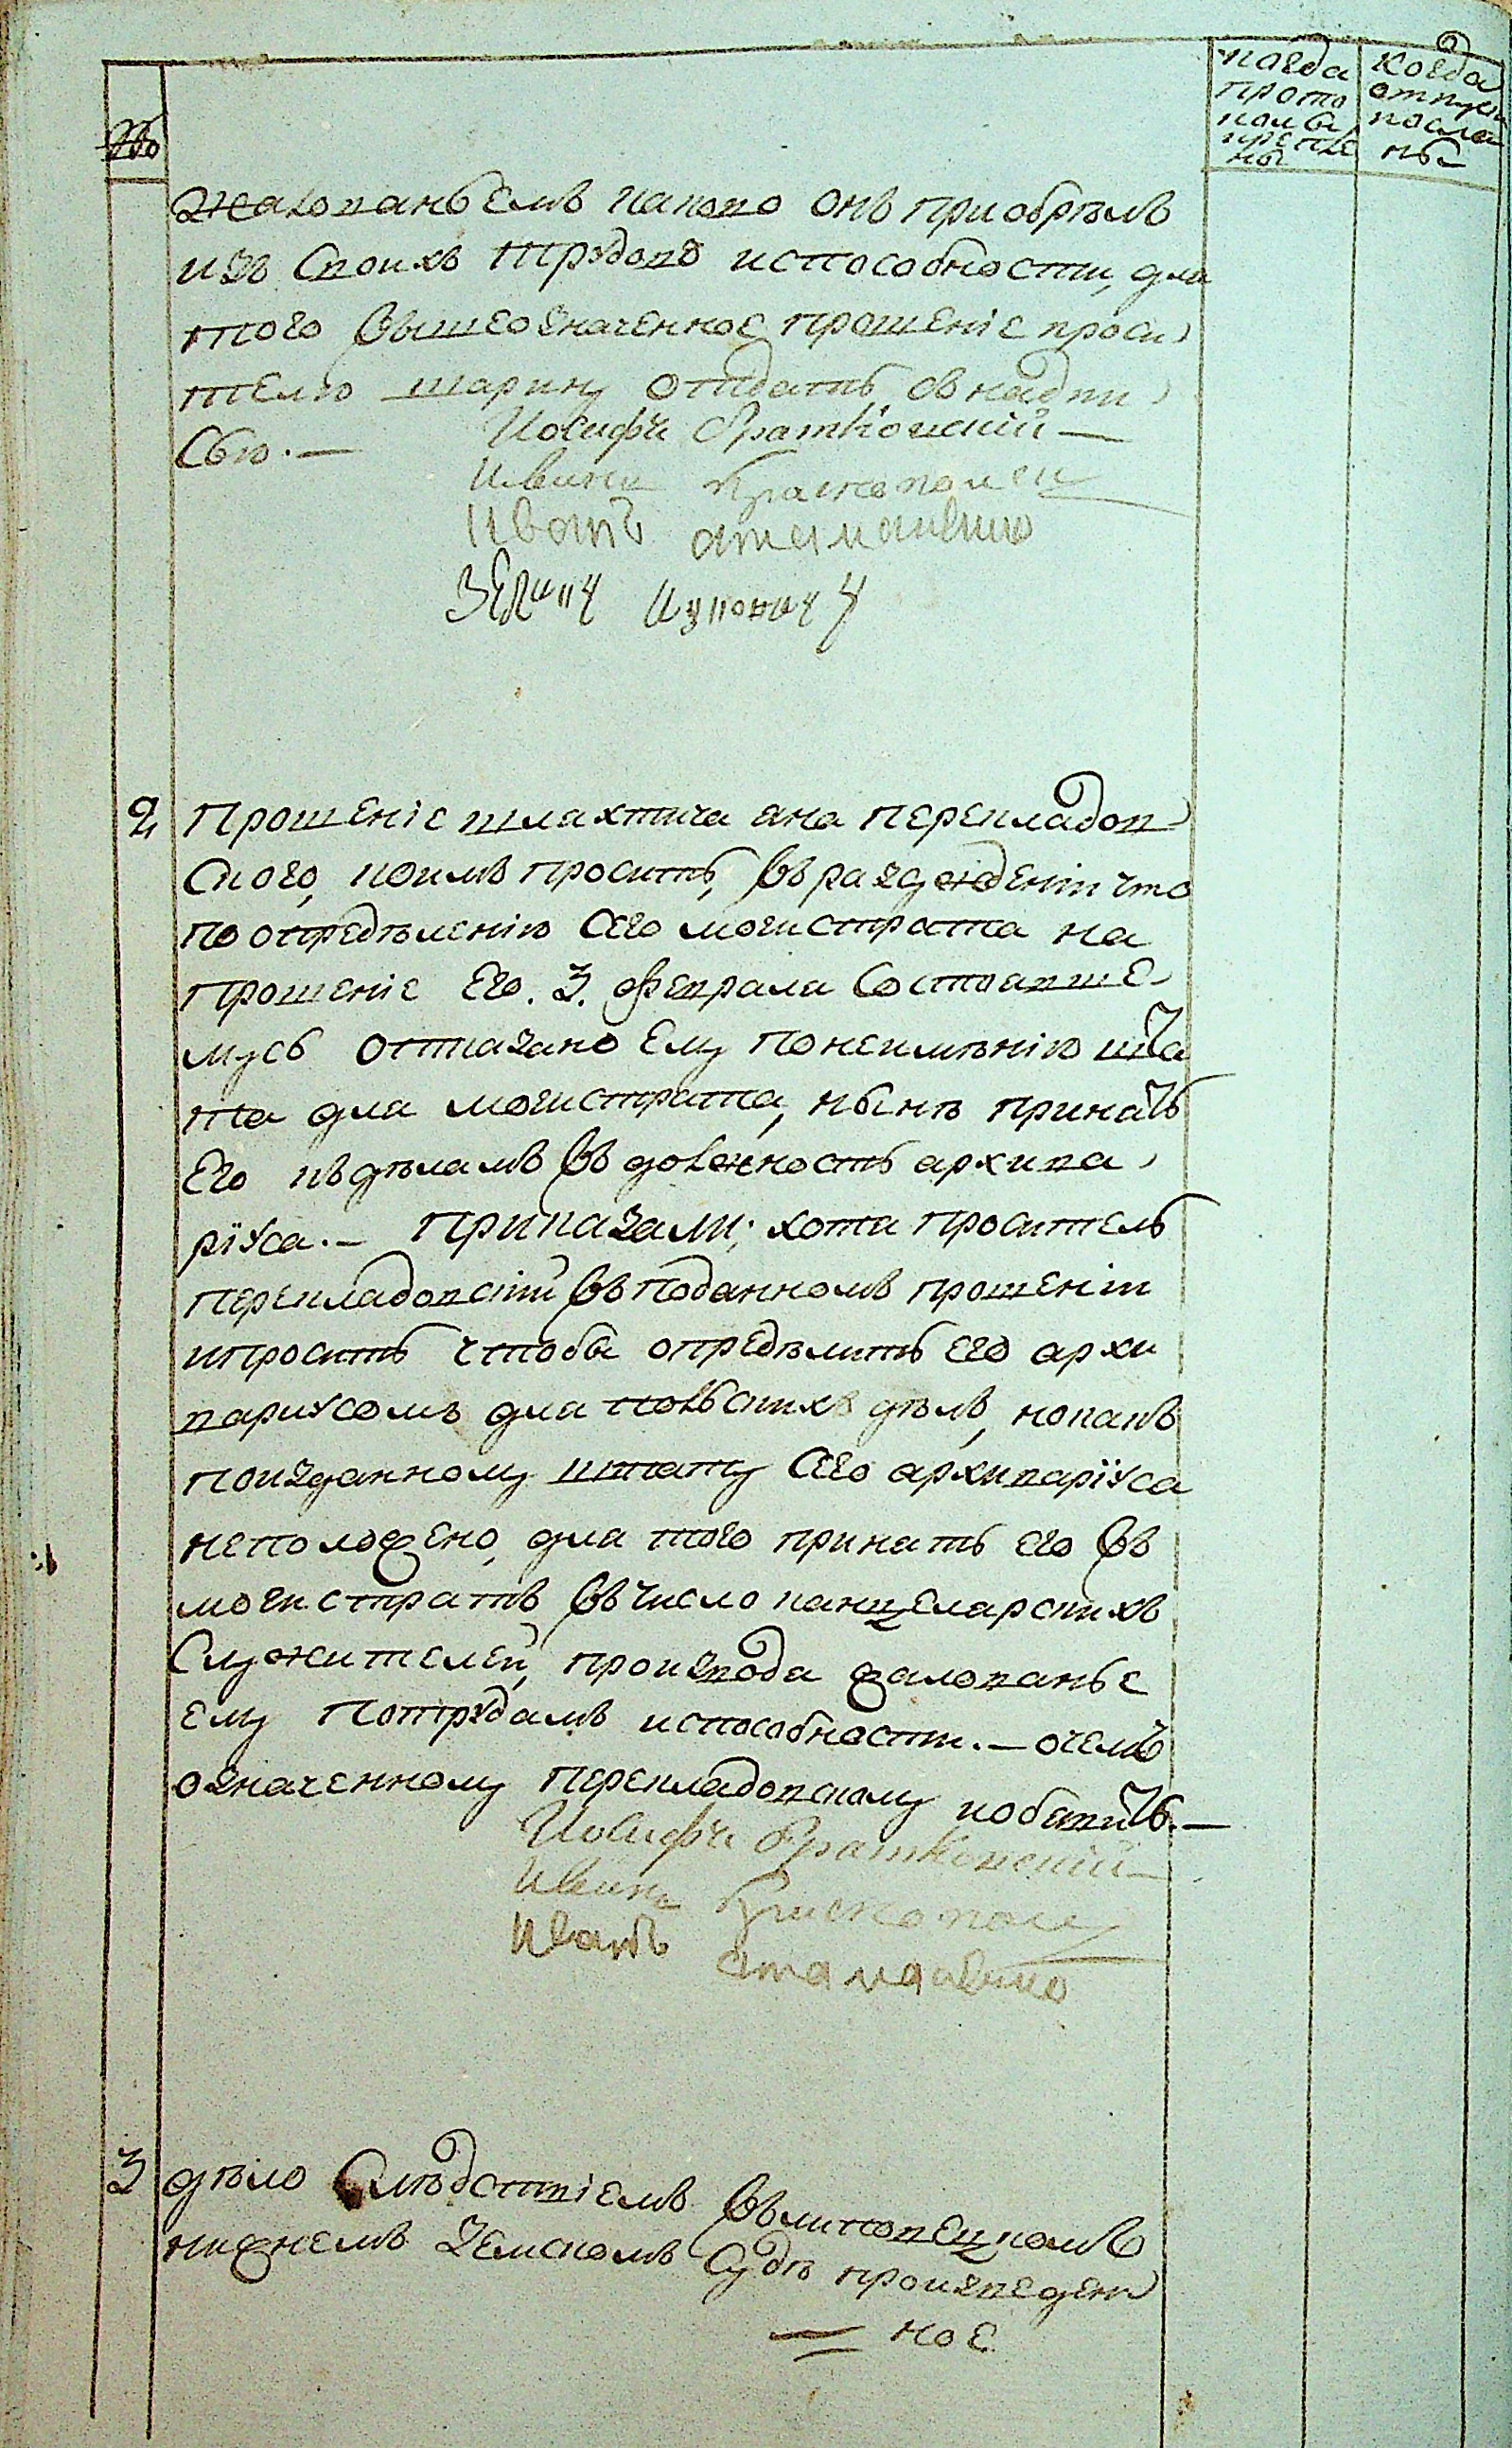 №
когда
прото
колы
крепле
ны
когда
отпуски
посла
ны
жалованьемъ каково онъ приобрѣлъ
изъ своихъ трудовъ испособности, для
того вышеозначенное прошеніе проси
телю шарину отдать съ надпи
сью. — Иосифъ Братковский —
Иванъ
Иванъ
2 Прошеніе шляхтича яна перекладов
ского, коимъ проситъ, въ разсужденіи что
по опредѣленію сего магистрата на
прошеніе Его. 3. февраля состоявше
мусь отказано Ему по неимѣнію шта
та для магистрата, нынѣ принять
Его къ дѣламъ въ должность архива
ріуса. — Приказали; хотя проситель
перекладовскій въ поданномъ прошеніи
ипроситъ чтобы опредѣлить его архи
вариусомъ для польскихъ дѣлъ, но какъ
поизданному штату сего архиваріуса
неположено, для того принять его въ
магистратъ въ число канцелярскихъ
служителей, производя жалованье
ему Потрудамъ испособности. — очемъ
означенному перекладовскому иобявить. —
Иосифъ Братковский —
Иванъ
Иванъ
3 дѣло слѣдствіемъ въ литовецкомъ
нижнемъ земскомъ судѣ произведен
ное